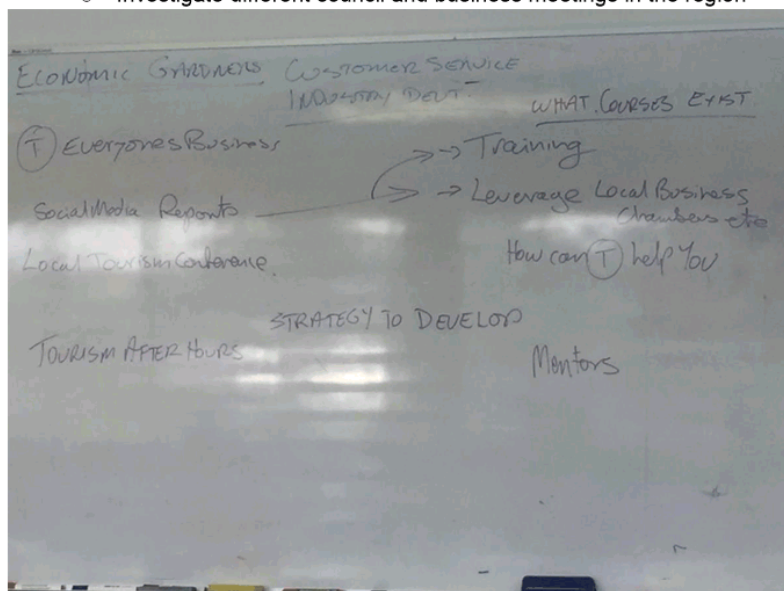 Investigate different council and business meetings in the region
ECONOMIC GARDNERS CUSTOMER SERVICE
INDUSTRY DEVT.
WHAT COURSES EXIST
T EveryonesBusiness
→ Training
Social Media Reports → Leverage Local Business
Chambers etc
Local Tourism Conference.
How can T help You
STRATEGY TO DEVELOP
TOURISM AFTER HOURS
Mentors